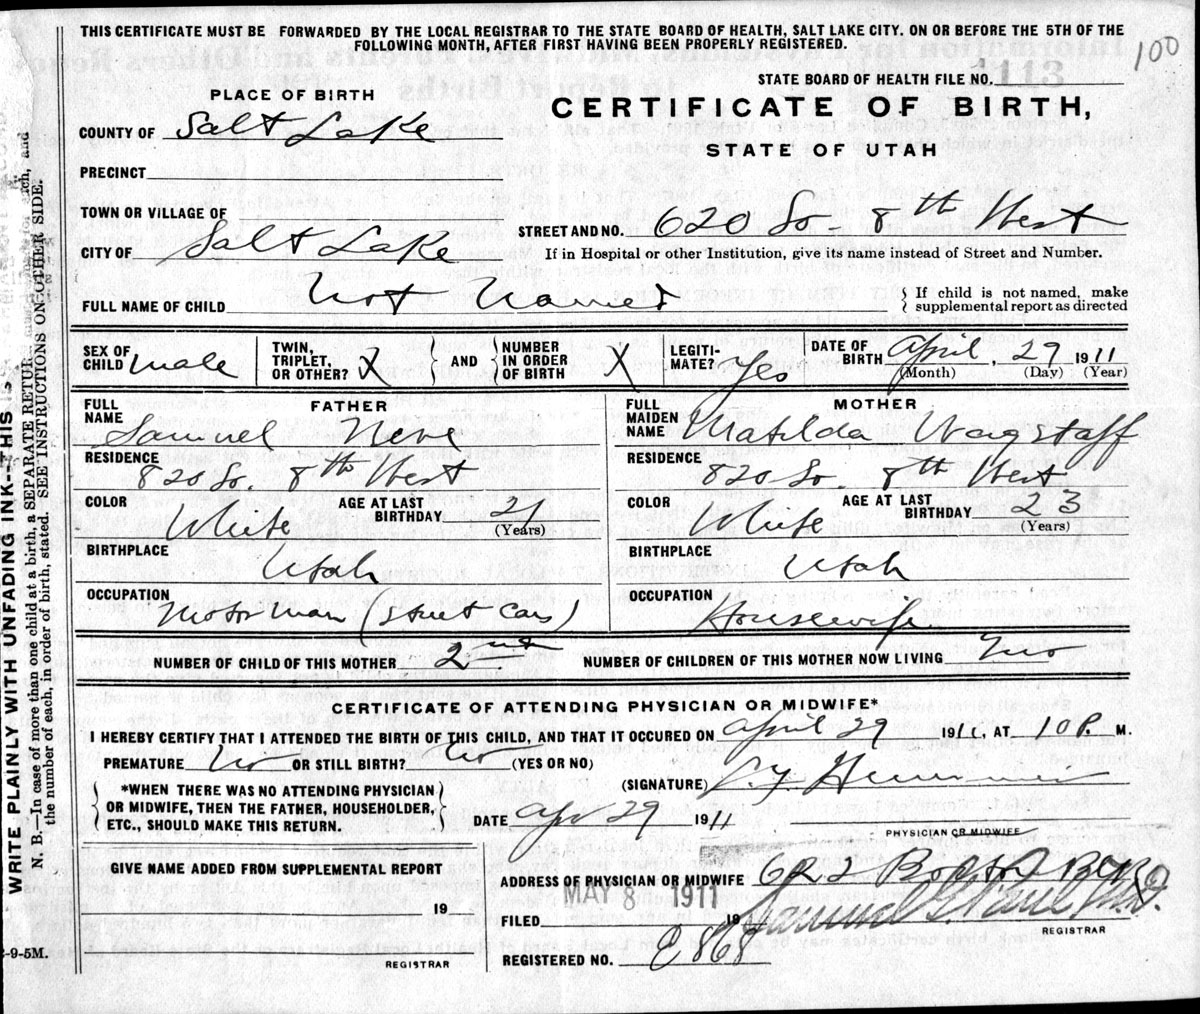 THIS CERTIFICATE MUST BE FORWARDED BY THE LOCAL REGISTRAR TO THE STATE BOARD OF HEALTH, SALT LAKE CITY. ON OR BEFORE THE 5TH OF THE
FOLLOWING MONTH, AFTER FIRST HAVING BEEN PROPERLY REGISTERED.
100
STATE BOARD OF HEALTH FILE NO. 1113
PLACE OF BIRTH
CERTIFICATE OF BIRTH,
COUNTY OF Salt Lake
STATE OF UTAH
PRECINCT
TOWN OR VILLAGE OF
STREET AND NO. 620 So - 8th West
CITY OF Salt Lake
If in Hospital or other Institution, give its name instead of Street and Number.
FULL NAME OF CHILD Not Named
If child is not named, make
supplemental report as directed
SEX OF CHILD male
TWIN, TRIPLET, OR OTHER? X
AND
NUMBER IN ORDER OF BIRTH X
LEGITIMATE? Yes
DATE OF BIRTH April 29 1911
(Month) (Day) (Year)
FATHER
FULL NAME Samuel Neve
RESIDENCE 820 So. 8th West
COLOR White
AGE AT LAST BIRTHDAY 21 (Years)
BIRTHPLACE Utah
OCCUPATION Motorman (Street Cars)
MOTHER
FULL MAIDEN NAME Matilda Wagstaff
RESIDENCE 820 So. 8th West
COLOR White
AGE AT LAST BIRTHDAY 23 (Years)
BIRTHPLACE Utah
OCCUPATION Housewife
NUMBER OF CHILD OF THIS MOTHER 2nd
NUMBER OF CHILDREN OF THIS MOTHER NOW LIVING Two
CERTIFICATE OF ATTENDING PHYSICIAN OR MIDWIFE*
I HEREBY CERTIFY THAT I ATTENDED THE BIRTH OF THIS CHILD, AND THAT IT OCCURED ON April 29 1911, AT 10 P. M.
PREMATURE No OR STILL BIRTH? No (YES OR NO)
(SIGNATURE)
*WHEN THERE WAS NO ATTENDING PHYSICIAN
OR MIDWIFE, THEN THE FATHER, HOUSEHOLDER,
ETC., SHOULD MAKE THIS RETURN.
DATE Apr 29 1911
PHYSICIAN OR MIDWIFE
GIVE NAME ADDED FROM SUPPLEMENTAL REPORT
19
REGISTRAR
ADDRESS OF PHYSICIAN OR MIDWIFE
FILED MAY 8 1911 19
REGISTRAR
REGISTERED NO. E868
WRITE PLAINLY WITH UNFADING INK--THIS IS
N. B.—In case of more than one child at a birth, a SEPARATE RETURN
number of each, in order of birth, stated. SEE INSTRUCTIONS ON OTHER SIDE.
-9-5M.